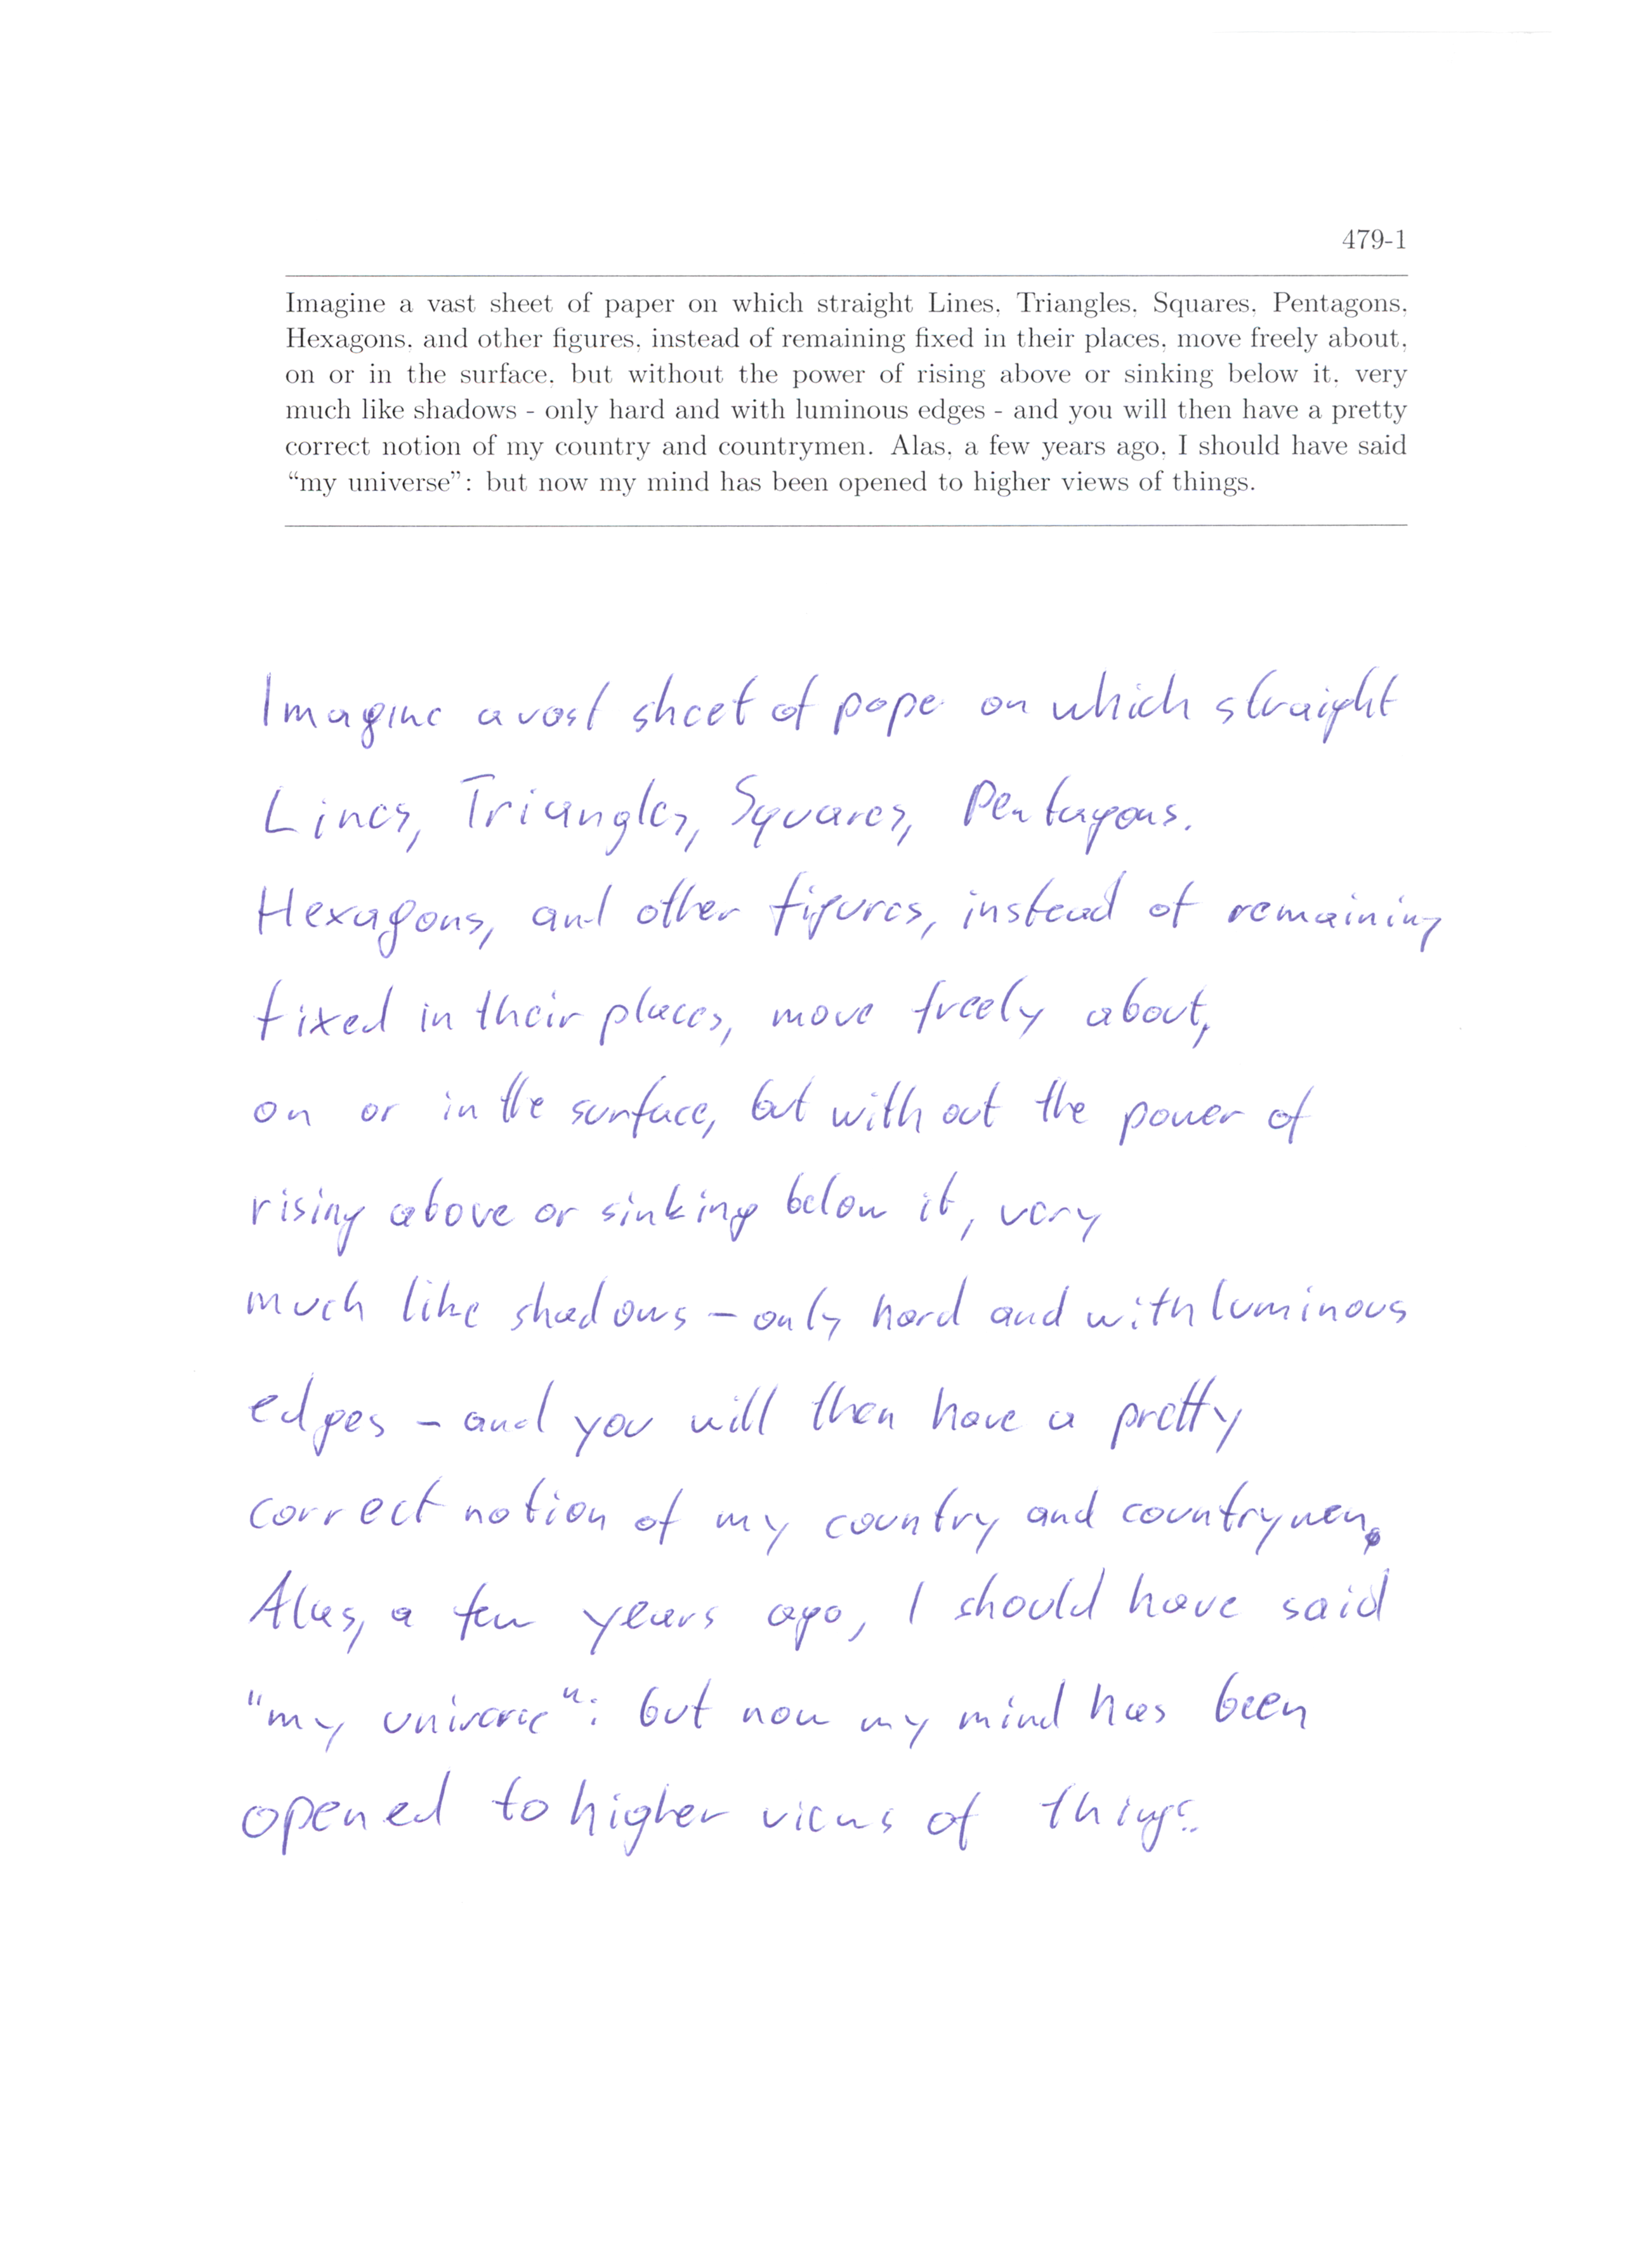 479-1
Imagine a vast sheet of paper on which straight Lines, Triangles, Squares, Pentagons,
Hexagons, and other figures, instead of remaining fixed in their places, move freely about,
on or in the surface, but without the power of rising above or sinking below it, very
much like shadows - only hard and with luminous edges - and you will then have a pretty
correct notion of my country and countrymen. Alas, a few years ago, I should have said
“my universe”: but now my mind has been opened to higher views of things.
Imagine a vast sheet of pape on which straight
Lines, Triangles, Squares, Pentagons.
Hexagons, and other figures, instead of remaining
fixed in their places, move freely about,
on or in the surface, but without the power of
rising above or sinking below it, very
much like shadows - only hard and with luminous
edges - and you will then have a pretty
correct notion of my country and countrymen.
Alas, a few years ago, I should have said
"my universe": but now my mind has been
opened to higher views of things.